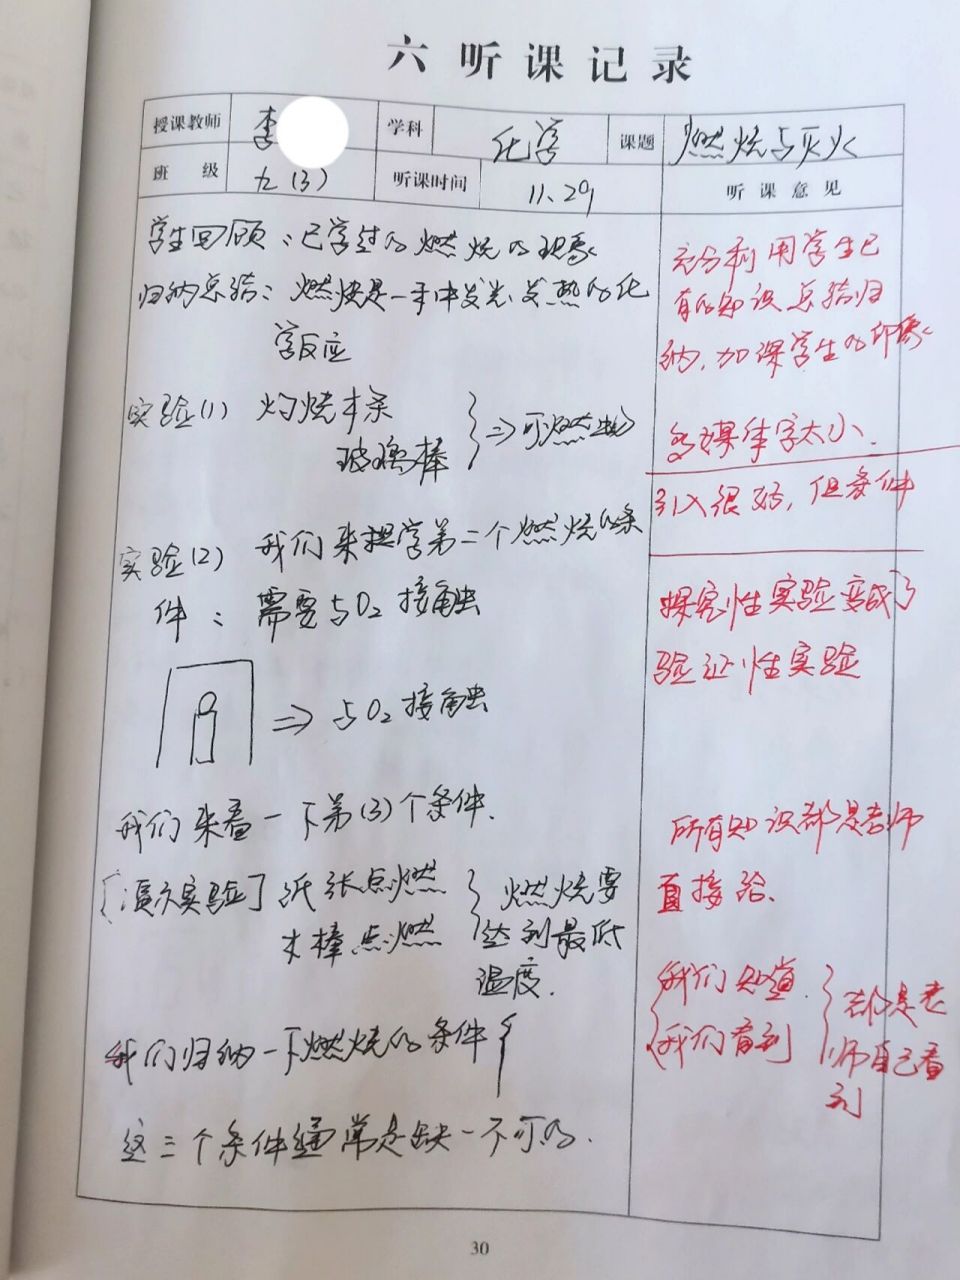 六 听 课 记 录
授课教师 李 学科 化学 课题 燃烧与灭火
班 级 九（3） 听课时间 11、29 听 课 意 见
学生回顾：已学过的燃烧的现象
归纳总结：燃烧是一种发光、发热的化
学反应
实验（1） 灼烧木条
玻璃棒
⇒可燃物
实验（2） 我们来探学第二个燃烧的条
件：需要与O₂接触
⇒ 与O₂接触
我们来看一下第（3）个条件.
[演示实验] 纸张点燃
木棒点燃
燃烧要
达到最低
温度.
我们归纳一下燃烧的条件
这三个条件通常是缺一不可的.
充分利用学生已
有的知识总结归
纳，加深学生的印象
多媒体字太小.
引入很好，但条件
探究性实验变成了
验证性实验
所有知识都是老师
直接给.
我们知道
我们看到
都是老
师自己看
到
30